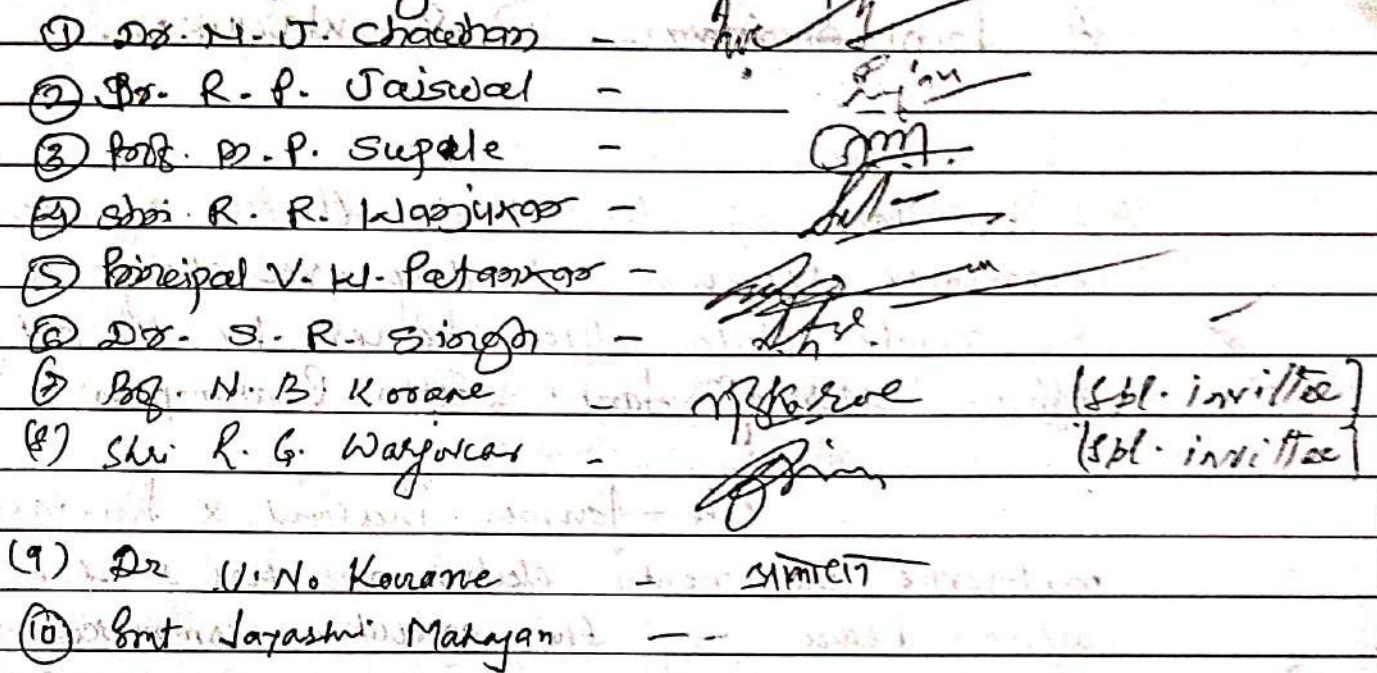 ① Dr. N. J. Chauhan -
② Dr. R. P. Jaiswal -
③ Prof. D. P. Supale -
④ Shri. R. R. Warjukar -
⑤ Principal V. W. Patankar -
⑥ Dr. S. R. Singh -
⑦ Prof. N. B. Korane - (Spl. invittee)
(8) Shri R. G. Warjurkar - (Spl. invittee)
(9) Dr V. N. Korane -
⑩ Smt Jayashri Mahajan - --